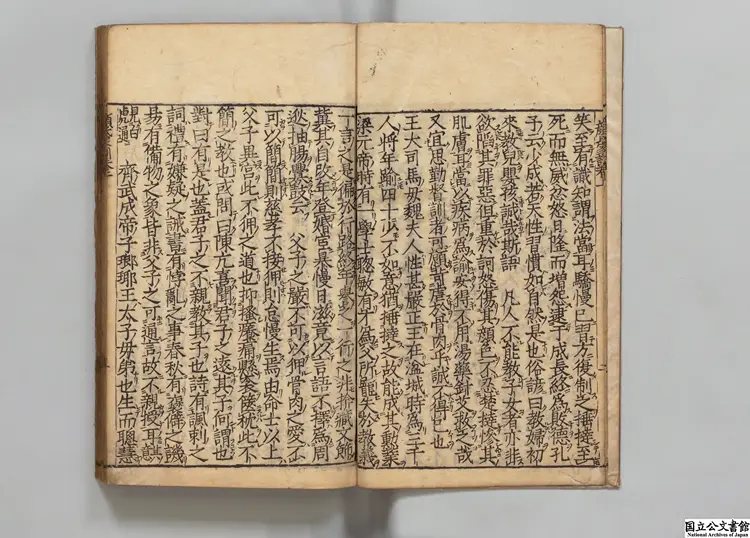 笑至有識知謂法當耳驕慢已習方復制之捶撻至
死而無威忿怒日隆而增怨逮于成長終為敗德孔
子云少成若天性習慣如自然是也俗諺曰教婦初
來教兒嬰孩誠哉斯語　凡人不能教子女者亦非
欲陷其罪惡但重於訶怒傷其顏色不忍楚撻慘其
肌膚耳當以疾病為諭安得不用湯藥針艾救之哉
又宜思勤督訓者可願苛虐於骨肉乎誠不得已也
王大司馬母魏夫人性甚嚴正王在湓城時為三千
人將年踰四十少不如意猶捶撻之故能成其勳業
梁元帝時有一學士聰敏有才為父所寵失於教義
一言之是徧於行路終年譽之一行之非揜藏文飾
冀其自改年登婚宦暴慢日滋竟以言語不擇為周
逖抽腸釁鼓云　父子之嚴不可以狎骨肉之愛不
可以簡簡則慈孝不接狎則怠慢生焉由命士以上
父子異宮此不狎之道也抑搔癢痛懸衾篋枕此不
簡之教也或問曰陳亢喜聞君子之遠其子何謂也
對曰有是也蓋君子之不親教其子也詩有諷刺之
詞禮有嫌疑之誡書有悖亂之事春秋有衺僻之譏
易有備物之象皆非父子之可通言故不親授耳其意
見白虎通　齊武成帝子琅琊王太子母弟也生而聰慧
国立公文書館
National Archives of Japan